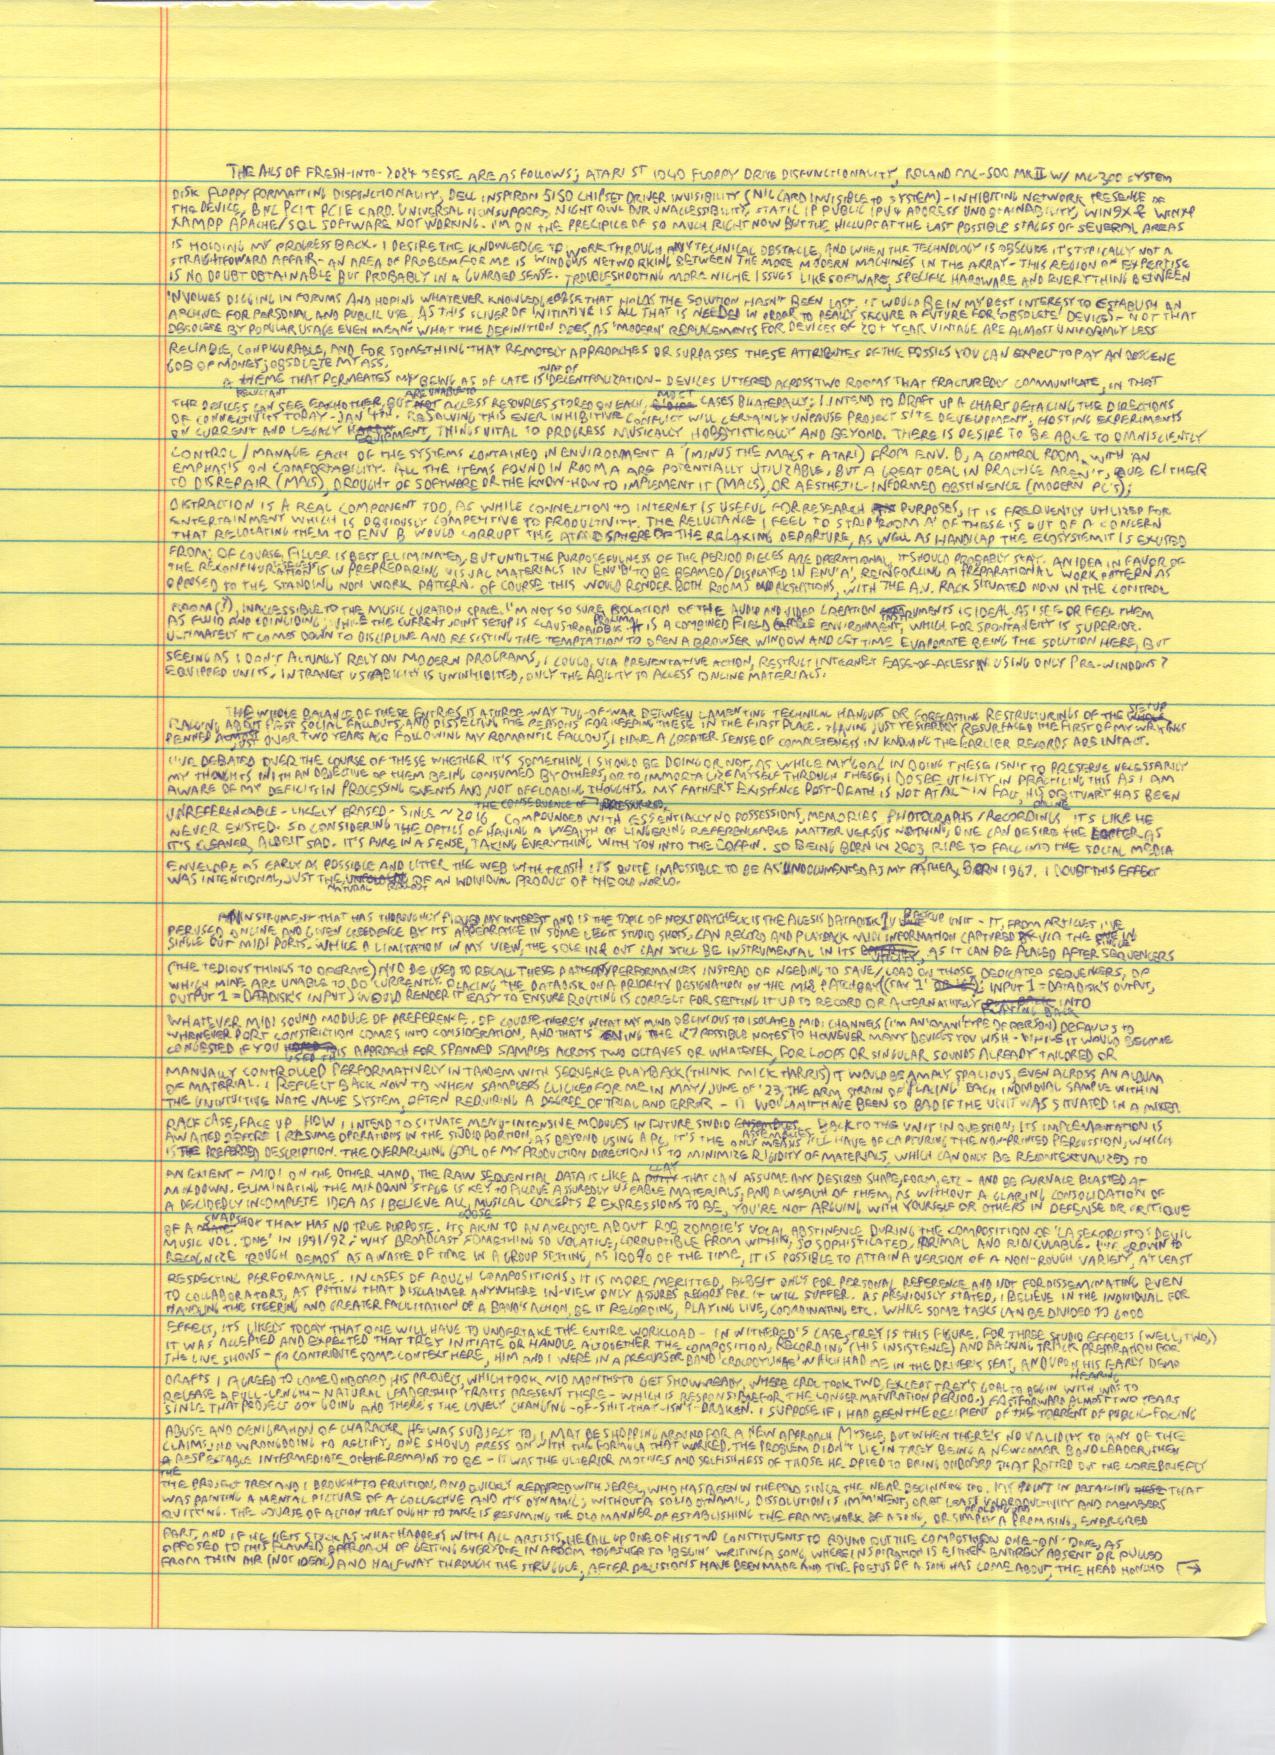 THE AILS OF FRESH-INTO-2024 JESSE ARE AS FOLLOWS; ATARI ST 1040 FLOPPY DRIVE DISFUNCTIONALITY, ROLAND MC-500 MKII W/ MC-300 SYSTEM
DISK FLOPPY FORMATTING DISFUNCTIONALITY, DELL INSPIRON 5150 CHIPSET DRIVER INVISIBILITY (NIC CARD INVISIBLE TO SYSTEM) - INHIBITING NETWORK PRESENCE OF
THE DEVICE, BNC PCIT PCIE CARD UNIVERSAL NONSUPPORT, NIGHT OWL DVR UNACCESSIBILITY, STATIC IP PUBLIC IPV4 ADDRESS UNOBTAINABILITY, WIN9X & WINXP
XAMPP APACHE/SQL SOFTWARE NOT WORKING. I'M ON THE PRECIPICE OF SO MUCH RIGHT NOW BUT THE HICCUPS AT THE LAST POSSIBLE STAGES OF SEVERAL AREAS
IS HOLDING MY PROGRESS BACK. I DESIRE THE KNOWLEDGE TO WORK THROUGH ANY TECHNICAL OBSTACLE, AND WHEN THE TECHNOLOGY IS OBSCURE IT'S TYPICALLY NOT A
STRAIGHTFORWARD AFFAIR - AN AREA OF PROBLEM FOR ME IS WINDOWS NETWORKING BETWEEN THE MORE MODERN MACHINES IN THE ARRAY - THIS REGION OF EXPERTISE
IS NO DOUBT OBTAINABLE BUT PROBABLY IN A GUARDED SENSE. TROUBLESHOOTING MORE NICHE ISSUES LIKE SOFTWARE, SPECIFIC HARDWARE AND EVERYTHING BETWEEN
INVOLVES DIGGING IN FORUMS AND HOPING WHATEVER KNOWLEDGEBASE THAT HOLDS THE SOLUTION HASN'T BEEN LOST. IT WOULD BE IN MY BEST INTEREST TO ESTABLISH AN
ARCHIVE FOR PERSONAL AND PUBLIC USE, AS THIS SLIVER OF INITIATIVE IS ALL THAT IS NEEDED IN ORDER TO REALLY SECURE A FUTURE FOR 'OBSOLETE' DEVICES - NOT THAT
OBSOLETE BY POPULAR USAGE EVEN MEANS WHAT THE DEFINITION DOES, AS 'MODERN' REPLACEMENTS FOR DEVICES OF 20+ YEAR VINTAGE ARE ALMOST UNIFORMLY LESS
RELIABLE, CONFIGURABLE, AND FOR SOMETHING THAT REMOTELY APPROACHES OR SURPASSES THESE ATTRIBUTES OF THE FOSSILS YOU CAN EXPECT TO PAY AN OBSCENE
GOB OF MONEY; OBSOLETE MY ASS.
A THEME THAT PERMEATES MY BEING AS OF LATE IS THAT OF DECENTRALIZATION - DEVICES UTTERED ACROSS TWO ROOMS THAT FRACTUREDLY COMMUNICATE, IN THAT
THE RELUCTANT DEVICES CAN SEE EACHOTHER, BUT ARE UNABLE TO ACCESS RESOURCES STORED ON EACH, MOST CASES BILATERALLY; I INTEND TO DRAFT UP A CHART DETAILING THE DIRECTIONS
OF CONNECTIVITY TODAY - JAN 4TH. RESOLVING THIS EVER INHIBITIVE CONFLICT WILL CERTAINLY UNPAUSE PROJECT SITE DEVELOPMENT, HOSTING EXPERIMENTS
ON CURRENT AND LEGACY EQUIPMENT, THINGS VITAL TO PROGRESS MUSICALLY HOBBYISTICALLY AND BEYOND. THERE IS DESIRE TO BE ABLE TO OMNISCIENTLY
CONTROL/MANAGE EACH OF THE SYSTEMS CONTAINED IN ENVIRONMENT A (MINUS THE MACS + ATARI) FROM ENV. B, A CONTROL ROOM, WITH AN
EMPHASIS ON COMFORTABILITY. ALL THE ITEMS FOUND IN ROOM A ARE POTENTIALLY UTILIZABLE, BUT A GREAT DEAL IN PRACTICE AREN'T, DUE EITHER
TO DISREPAIR (MACS), DROUGHT OF SOFTWARE OR THE KNOW-HOW TO IMPLEMENT IT (MACS), OR AESTHETIC-INFORMED ABSTINENCE (MODERN PC'S);
DISTRACTION IS A REAL COMPONENT TOO, AS WHILE CONNECTION TO INTERNET IS USEFUL FOR RESEARCH PURPOSES, IT IS FREQUENTLY UTILIZED FOR
ENTERTAINMENT WHICH IS OBVIOUSLY COMPETITIVE TO PRODUCTIVITY. THE RELUCTANCE I FEEL TO STRIP 'ROOM A' OF THESE IS OUT OF A CONCERN
THAT RELOCATING THEM TO ENV B WOULD CORRUPT THE ATMOSPHERE OF THE RELAXING DEPARTURE, AS WELL AS HANDICAP THE ECOSYSTEM IT IS EXCISED
FROM; OF COURSE, FILLER IS BEST ELIMINATED, BUT UNTIL THE PURPOSEFULNESS OF THE PERIOD PIECES ARE OPERATIONAL, IT SHOULD PROBABLY STAY. AN IDEA IN FAVOR OF
THE RECONFIGURATION IS IN PREPREPARING VISUAL MATERIALS IN ENV 'B' TO BE BEAMED/DISPLAYED IN ENV 'A', REINFORCING A PREPARATIONAL WORK PATTERN AS
OPPOSED TO THE STANDING NON WORK PATTERN. OF COURSE THIS WOULD RENDER BOTH ROOMS WORKSTATIONS, WITH THE A.V. RACK SITUATED NOW IN THE CONTROL
ROOM(?), INACCESSIBLE TO THE MUSIC CURATION SPACE. I'M NOT SO SURE ISOLATION OF THE AUDIO AND VIDEO CREATION INSTRUMENTS IS IDEAL AS I SEE OR FEEL THEM
AS FLUID AND COINCIDING; WHILE THE CURRENT JOINT SETUP IS CLAUSTROPHOBIC IT IS A COMBINED FIELD ENVIRONMENT, WHICH FOR SPONTANEITY IS SUPERIOR.
ULTIMATELY IT COMES DOWN TO DISCIPLINE AND RESISTING THE TEMPTATION TO OPEN A BROWSER WINDOW AND LET TIME EVAPORATE BEING THE SOLUTION HERE, BUT
SEEING AS I DON'T ACTUALLY RELY ON MODERN PROGRAMS, I COULD, VIA PREVENTATIVE ACTION, RESTRICT INTERNET EASE-OF-ACCESS IN USING ONLY PRE-WINDOWS 7
EQUIPPED UNITS. INTRANET USEABILITY IS UNINHIBITED, ONLY THE ABILITY TO ACCESS ONLINE MATERIALS.
THE WHOLE BALANCE OF THESE ENTRIES IS A THREE-WAY TUG-OF-WAR BETWEEN LAMENTING TECHNICAL HANGUPS OR FORECASTING RESTRUCTURINGS OF THE SETUP
ABOUT PAST SOCIAL FALLOUTS, AND DISSECTING THE REASONS FOR KEEPING THESE IN THE FIRST PLACE. HAVING JUST YESTERDAY RESURFACED THE FIRST OF MY WRITINGS
PENNED JUST OVER TWO YEARS AGO FOLLOWING MY ROMANTIC FALLOUT, I HAVE A GREATER SENSE OF COMPLETENESS IN KNOWING THE EARLIER RECORDS ARE INTACT.
I'VE DEBATED OVER THE COURSE OF THESE WHETHER IT'S SOMETHING I SHOULD BE DOING OR NOT, AS WHILE MY GOAL IN DOING THESE ISN'T TO PRESERVE NECESSARILY
MY THOUGHTS WITH AN OBJECTIVE OF THEM BEING CONSUMED BY OTHERS, OR TO IMMORTALIZE MYSELF THROUGH THESE, I DO SEE UTILITY IN PRACTICING THIS AS I AM
AWARE OF MY DEFICIT IN PROCESSING EVENTS AND NOT OFFLOADING THOUGHTS. MY FATHER'S EXISTENCE POST-DEATH IS NOT AT ALL - IN FACT, HIS ONLINE OBITUARY HAS BEEN
UNREFERENCABLE - LIKELY ERASED - SINCE ~2016, THE CONSEQUENCE OF COMPOUNDED WITH ESSENTIALLY NO POSSESSIONS, MEMORIES, PHOTOGRAPHS/RECORDINGS IT'S LIKE HE
NEVER EXISTED. SO CONSIDERING THE OPTICS OF HAVING A WEALTH OF LINGERING REFERENCEABLE MATTER VERSUS NOTHING, ONE CAN DESIRE THE LATTER AS
IT'S CLEANER, ALBEIT SAD. IT'S PURE IN A SENSE, TAKING EVERYTHING WITH YOU INTO THE COFFIN. SO BEING BORN IN 2003 RIPE TO FALL INTO THE SOCIAL MEDIA
ENVELOPE AS EARLY AS POSSIBLE AND LITTER THE WEB WITH TRASH IT'S QUITE IMPOSSIBLE TO BE AS UNDOCUMENTED AS MY FATHER, BORN 1967. I DOUBT THIS EFFECT
WAS INTENTIONAL, JUST THE NATURAL OF AN INDIVIDUAL PRODUCT OF THE OLD WORLD.
AN INSTRUMENT THAT HAS THOROUGHLY PIQUED MY INTEREST AND IS THE TOPIC OF NEXT PAYCHECK IS THE ALESIS DATADISK 1U BACKUP UNIT - IT, FROM ARTICLES I'VE
PERUSED ONLINE AND GIVEN CREDENCE BY ITS APPEARANCE IN SOME LEGIT STUDIO SHOTS, CAN RECORD AND PLAYBACK MIDI INFORMATION CAPTURED VIA THE
SINGLE OUT MIDI PORTS. WHILE A LIMITATION IN MY VIEW, THE SOLE IN & OUT CAN STILL BE INSTRUMENTAL IN ITS UTILITY, AS IT CAN BE PLACED AFTER SEQUENCERS
(THE TEDIOUS THINGS TO OPERATE) AND BE USED TO RECALL THESE PATTERNS/PERFORMANCES INSTEAD OF NEEDING TO SAVE/LOAD ON THOSE DEDICATED SEQUENCERS, OF
WHICH MINE ARE UNABLE TO DO CURRENTLY. PLACING THE DATADISK ON A PRIORITY DESIGNATION ON THE MIDI PATCHBAY (SAY '1' INPUT 1 = DATADISK'S OUTPUT,
OUTPUT 1 = DATADISK'S INPUT) WOULD RENDER IT EASY TO ENSURE ROUTING IS CORRECT FOR SETTING IT UP TO RECORD OR ALTERNATIVELY PLAYING BACK INTO
WHATEVER MIDI SOUND MODULE OF PREFERENCE. OF COURSE THERE'S WHAT MY MIND OBLIVIOUS TO ISOLATED MIDI CHANNELS (I'M AN 'OMNI' TYPE OF PERSON) DEFAULTS TO
WHENEVER PORT CONSTRICTION COMES INTO CONSIDERATION, AND THAT'S THE 127 POSSIBLE NOTES TO HOWEVER MANY DEVICES YOU WISH - WHILE IT WOULD BECOME
CONGESTED IF YOU USED THIS APPROACH FOR SPANNED SAMPLES ACROSS TWO OCTAVES OR WHATEVER, FOR LOOPS OR SINGULAR SOUNDS ALREADY TAILORED OR
MANUALLY CONTROLLED PERFORMATIVELY IN TANDEM WITH SEQUENCE PLAYBACK (THINK MICK HARRIS) IT WOULD BE AMPLY SPACIOUS, EVEN ACROSS AN ALBUM
OF MATERIAL. I REFLECT BACK NOW TO WHEN SAMPLERS CLICKED FOR ME IN MAY/JUNE OF '23, THE ARM STRAIN OF PLACING EACH INDIVIDUAL SAMPLE WITHIN
THE UNINTUITIVE NOTE VALUE SYSTEM, OFTEN REQUIRING A DEGREE OF TRIAL AND ERROR - IT WOULDN'T HAVE BEEN SO BAD IF THE UNIT WAS SITUATED IN A MIXER
RACK CASE, FACE UP HOW I INTEND TO SITUATE MENU-INTENSIVE MODULES IN FUTURE STUDIO ASSEMBLIES. BACK TO THE UNIT IN QUESTION; ITS IMPLEMENTATION IS
AWAITED BEFORE I RESUME OPERATIONS IN THE STUDIO PORTION, AS BEYOND USING A PC, IT'S THE ONLY MEANS I'LL HAVE OF CAPTURING THE NON-PRINTED PERCUSSION, WHICH
IS THE PREFERRED DESCRIPTION. THE OVERARCHING GOAL OF MY PRODUCTION DIRECTION IS TO MINIMIZE RIGIDITY OF MATERIALS, WHICH CAN ONLY BE RECONTEXTUALIZED TO
AN EXTENT - MIDI ON THE OTHER HAND, THE RAW SEQUENTIAL DATA IS LIKE A CLAY THAT CAN ASSUME ANY DESIRED SHAPE, FORM, ETC - AND BE FURNACE BLASTED AT
MIXDOWN. ELIMINATING THE MIXDOWN STAGE IS KEY TO ACCRUE ASSUREDLY USEABLE MATERIALS, AND A WEALTH OF THEM, AS WITHOUT A GLARING CONSOLIDATION OF
A DECIDEDLY INCOMPLETE IDEA AS I BELIEVE ALL MUSICAL CONCEPTS & EXPRESSIONS TO BE, YOU'RE NOT ARGUING WITH YOURSELF OR OTHERS IN DEFENSE OR CRITIQUE
OF A LOOSE SNAPSHOT THAT HAS NO TRUE PURPOSE. ITS AKIN TO AN ANECDOTE ABOUT ROB ZOMBIE'S VOCAL ABSTINENCE DURING THE COMPOSITION OF 'LA SEXORCISTO: DEVIL
MUSIC VOL. ONE' IN 1991/92; WHY BROADCAST SOMETHING SO VOLATILE, CORRUPTIBLE FROM WITHIN, SO SOPHISTICATED, PRIMAL AND RIDICULABLE. I'VE GROWN TO
RECOGNIZE 'ROUGH DEMOS' AS A WASTE OF TIME IN A GROUP SETTING, AS 100% OF THE TIME, IT IS POSSIBLE TO ATTAIN A VERSION OF A NON-ROUGH VARIETY, AT LEAST
RESPECTING PERFORMANCE. IN CASES OF ROUGH COMPOSITIONS, IT IS MORE MERITTED, ALBEIT ONLY FOR PERSONAL REFERENCE AND NOT FOR DISSEMINATING EVEN
TO COLLABORATORS, AS PUTTING THAT DISCLAIMER ANYWHERE IN-VIEW ONLY ASSURES REGARD FOR IT WILL SUFFER. AS PREVIOUSLY STATED, I BELIEVE IN THE INDIVIDUAL FOR
HANDLING THE STEERING AND GREATER FACILITATION OF A BAND'S ACTION, BE IT RECORDING, PLAYING LIVE, COORDINATING ETC. WHILE SOME TASKS CAN BE DIVIDED TO GOOD
EFFECT, ITS LIKELY TODAY THAT ONE WILL HAVE TO UNDERTAKE THE ENTIRE WORKLOAD - IN WITHERED'S CASE, TREY IS THIS FIGURE. FOR THREE STUDIO EFFORTS (WELL, TWO,)
IT WAS ACCEPTED AND EXPECTED THAT TREY INITIATE OR HANDLE ALTOGETHER THE COMPOSITION, RECORDING (THIS INSISTENCE) AND BACKING TRACK PREPARATION FOR
THE LIVE SHOWS - (TO CONTRIBUTE SOME CONTEXT HERE, HIM AND I WERE IN A PRECURSOR BAND WHICH HAD ME IN THE DRIVER'S SEAT, AND UPON HEARING HIS EARLY DEMO
DRAFTS I AGREED TO COME ONBOARD HIS PROJECT, WHICH TOOK MONTHS TO GET SHOW READY, WHERE CROC TOOK TWO, EXCEPT TREY'S GOAL TO BEGIN WITH WAS TO
RELEASE A FULL-LENGTH - NATURAL LEADERSHIP TRAITS PRESENT THERE - WHICH IS RESPONSIBLE FOR THE LONGER MATURATION PERIOD.) FASTFORWARD ALMOST TWO YEARS
SINCE THAT PROJECT GOT GOING AND THERE'S THE LOVELY CHANGING-OF-SHIT-THAT-ISN'T-BROKEN. I SUPPOSE IF I HAD BEEN THE RECIPIENT OF THE TORRENT OF PUBLIC-FACING
ABUSE AND DENIGRATION OF CHARACTER HE WAS SUBJECT TO, I MAY BE SHOPPING AROUND FOR A NEW APPROACH MYSELF, BUT WHEN THERE'S NO VALIDITY TO ANY OF THE
CLAIMS, NO WRONGDOING TO RECTIFY, ONE SHOULD PRESS ON WITH THE FORMULA THAT WORKED. THE PROBLEM DIDN'T LIE IN TREY BEING A NEWCOMER BAND LEADER, THEN
A RESPECTABLE INTERMEDIATE ONE HE REMAINS TO BE - IT WAS THE ULTERIOR MOTIVES AND SELFISHNESS OF THOSE HE OPTED TO BRING ONBOARD THAT ROTTED OUT THE CORE BRIEFLY
THE PROJECT TREY AND I BROUGHT TO FRUITION, AND QUICKLY REPAIRED WITH JEREL, WHO HAS BEEN IN THE FOLD SINCE THE NEAR BEGINNING TOO. MY POINT IN DETAILING THAT
WAS PAINTING A MENTAL PICTURE OF A COLLECTIVE AND IT'S DYNAMIC; WITHOUT A SOLID DYNAMIC, DISSOLUTION IS IMMINENT, OR AT LEAST UNPRODUCTIVITY AND MEMBERS
QUITTING. THE COURSE OF ACTION TREY OUGHT TO TAKE IS RESUMING THE OLD MANNER OF ESTABLISHING THE FRAMEWORK OF A SONG, OR SIMPLY A PROMISING, ENERGIZED
PART, AND IF HE GETS STUCK AS WHAT HAPPENS WITH ALL ARTISTS, HE CALL UP ONE OF HIS TWO CONSTITUENTS TO ROUND OUT THE COMPOSITION ONE-ON-ONE, AS
OPPOSED TO THIS FLAWED APPROACH OF GETTING EVERYONE IN A ROOM TOGETHER TO 'BEGIN' WRITING A SONG, WHERE INSPIRATION IS EITHER ENTIRELY ABSENT OR PULLED
FROM THIN AIR (NOT IDEAL) AND HALFWAY THROUGH THE STRUGGLE, AFTER DECISIONS HAVE BEEN MADE AND THE FOETUS OF A SONG HAS COME ABOUT, THE HEAD HONCHO →